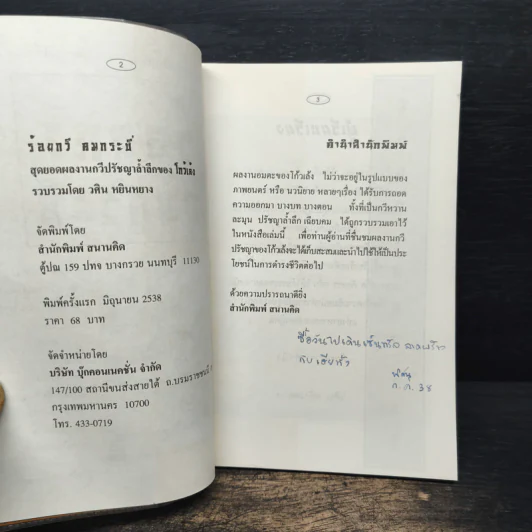 2
ร้อยกวี คมกระบี่
สุดยอดผลงานกวีปรัชญาล้ำลึกของ โกวเล้ง
รวบรวมโดย วศิน หยินหยาง
จัดพิมพ์โดย
สำนักพิมพ์ สนานคิด
ตู้ปณ 159 ปทจ บางกรวย นนทบุรี 11130
พิมพ์ครั้งแรก มิถุนายน 2538
ราคา 68 บาท
จัดจำหน่ายโดย
บริษัท บุ๊กคอนเนคชั่น จำกัด
147/100 สถานีขนส่งสายใต้ ถ.บรมราชชนนี
กรุงเทพมหานคร 10700
โทร. 433-0719
3
คำสำนักพิมพ์
ผลงานอมตะของโก้วเล้ง ไม่ว่าจะอยู่ในรูปแบบของ
ภาพยนตร์ หรือ นวนิยาย หลายๆเรื่อง ได้รับการถอด
ความออกมา บางบท บางตอน ทั้งที่เป็นกวีหวาน
ละมุน ปรัชญาล้ำลึก เฉียบคม ได้ถูกรวบรวมเอาไว้
ในหนังสือเล่มนี้ เพื่อท่านผู้อ่านที่ชื่นชมผลงานกวี
ปรัชญาของโก้วเล้งจะได้เก็บสะสมและนำไปใช้ให้เป็นประ
โยชน์ในการดำรงชีวิตต่อไป
ด้วยความปรารถนาดียิ่ง
สำนักพิมพ์ สนานคิด
ซื้อวันไปเดินเซ็นทรัล ลาดพร้าว
กับ
ก.ค. 38